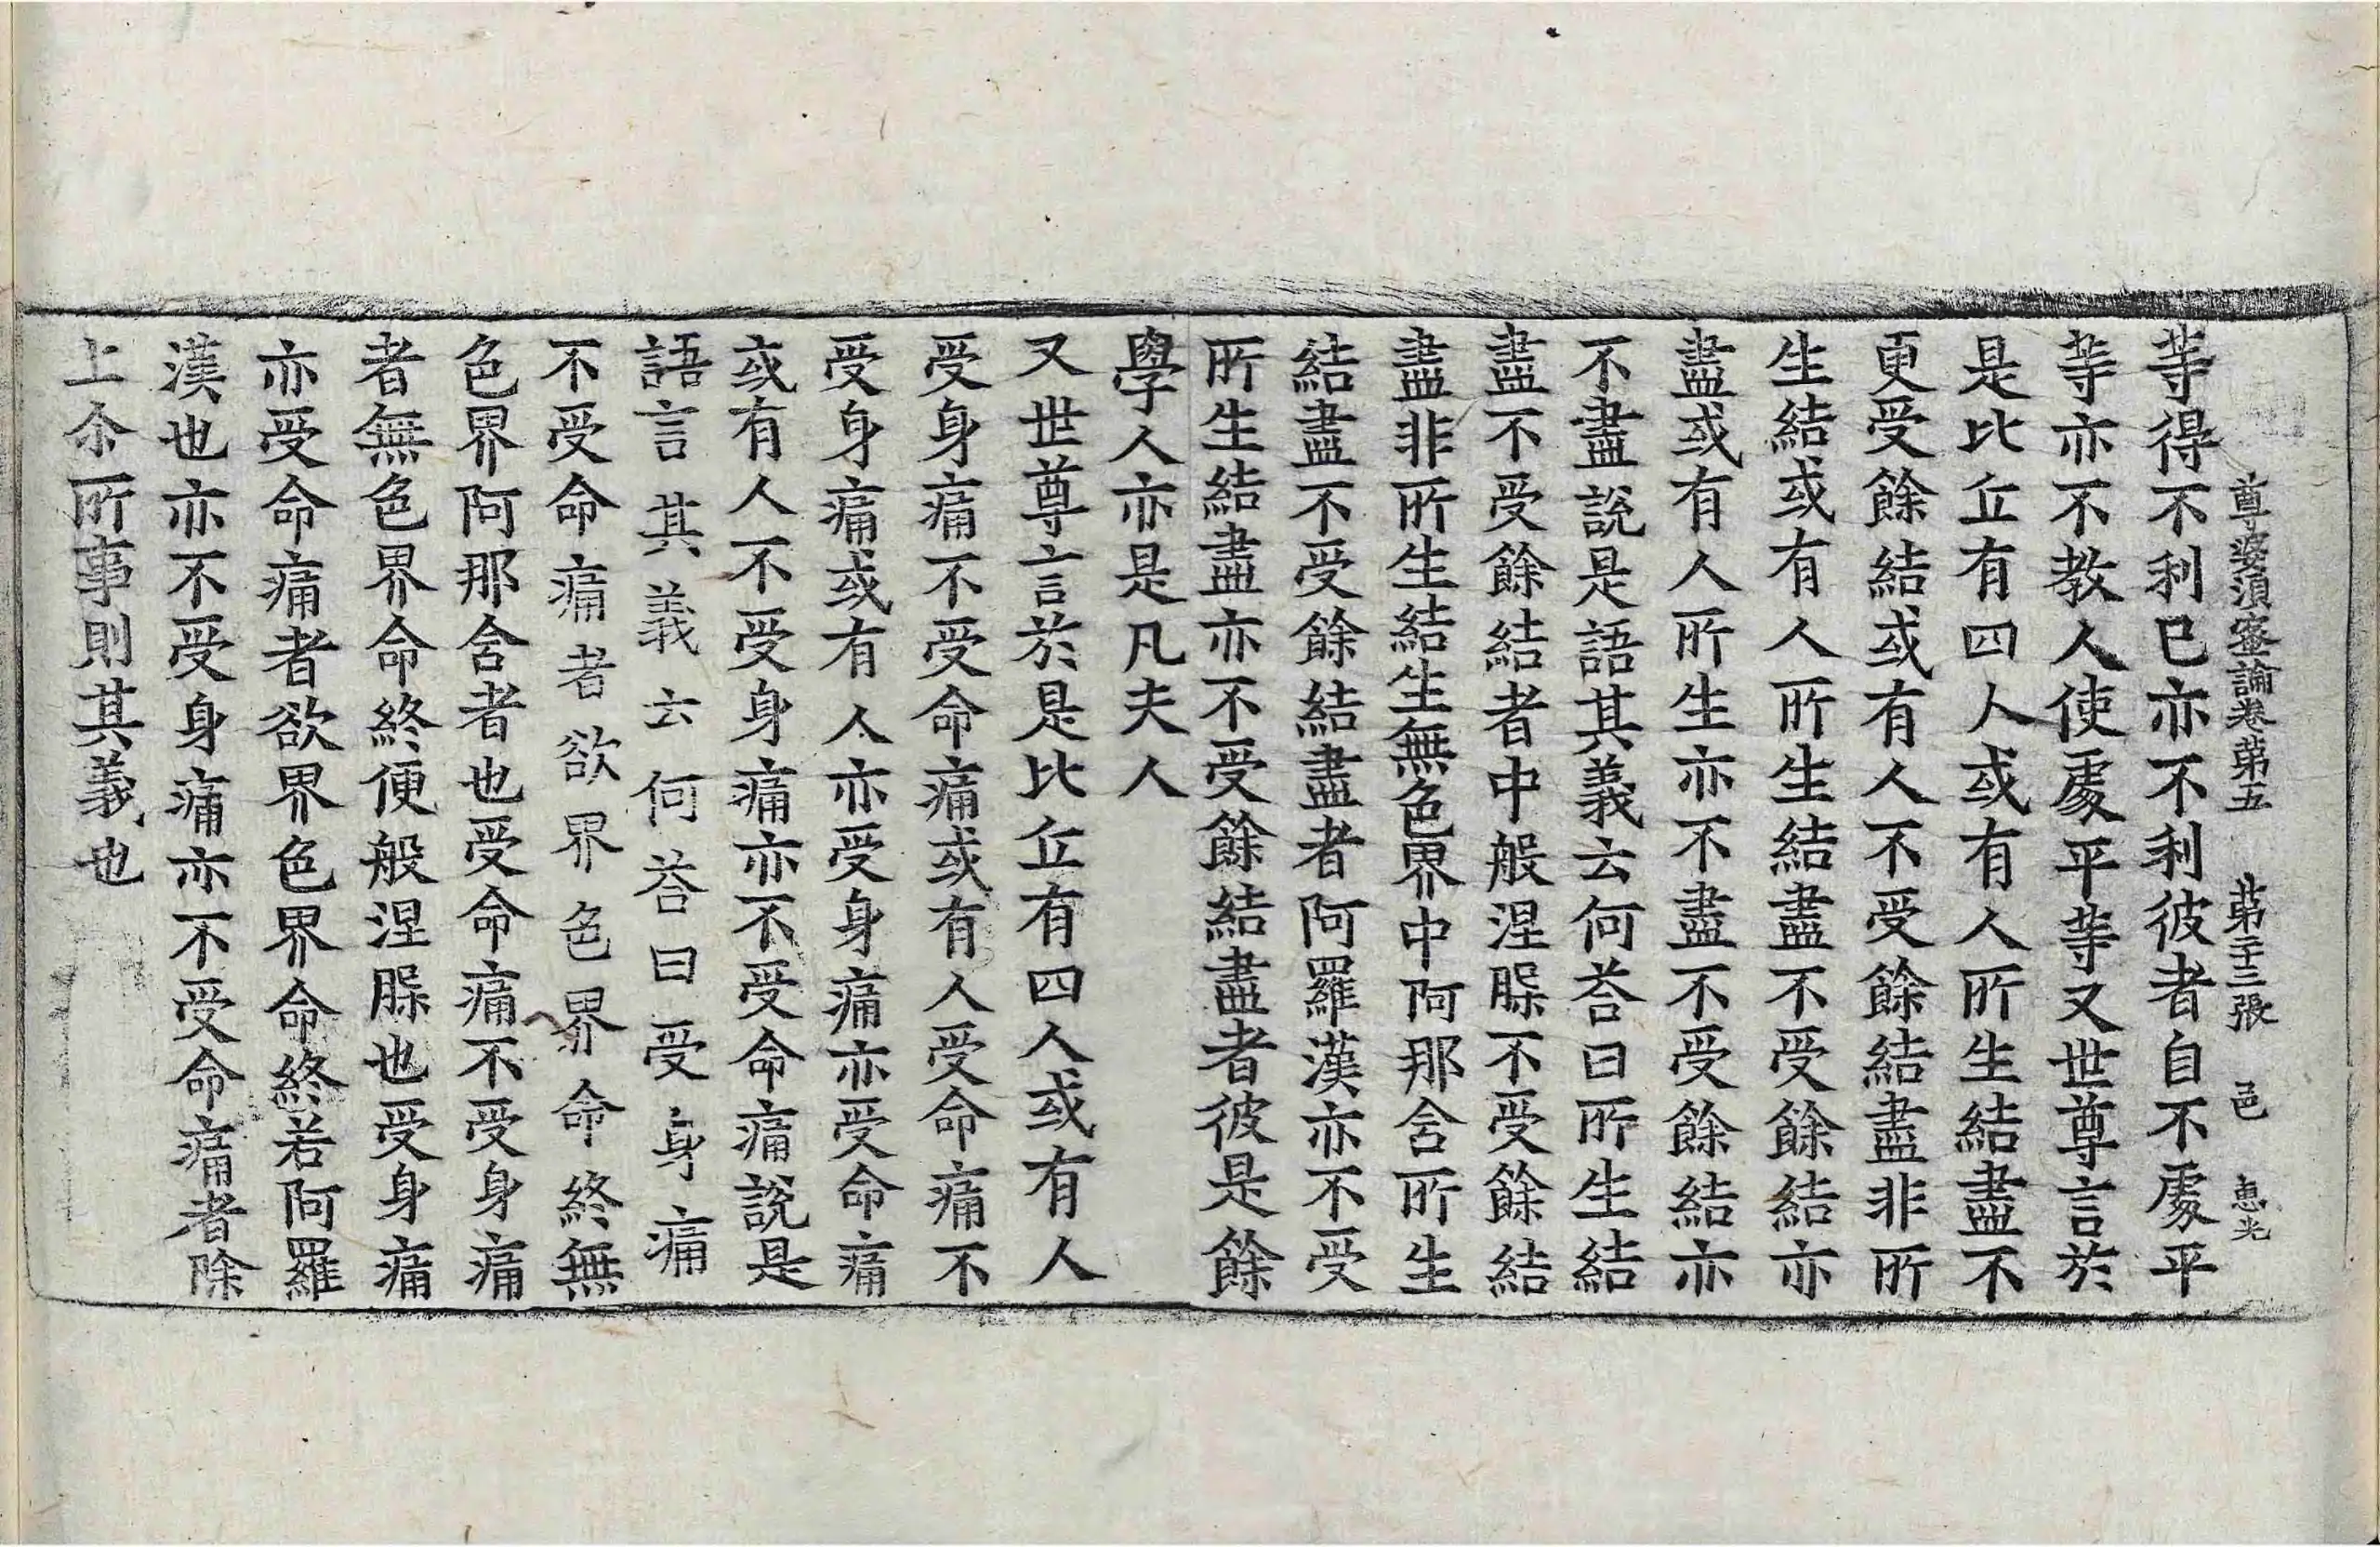 尊婆湏蜜論卷苐五 苐二十三張 邑 惠光
等得不利已亦不利彼者自不處平
等亦不教人使處平等又世尊言於
是比丘有四人或有人所生結盡不
更受餘結或有人不受餘結盡非所
生結或有人所生結盡不受餘結亦
盡或有人所生亦不盡不受餘結亦
不盡說是語其義云何荅曰所生結
盡不受餘結者中般涅槃不受餘結
盡非所生結生無色界中阿那含所生
結盡不受餘結盡者阿羅漢亦不受
所生結盡亦不受餘結盡者彼是餘
學人亦是凡夫人
又世尊言於是比丘有四人或有人
受身痛不受命痛或有人受命痛不
受身痛或有人亦受身痛亦受命痛
或有人不受身痛亦不受命痛說是
語言其義云何荅曰受身痛
不受命痛者欲界色界命終無
色界阿那含者也受命痛不受身痛
者無色界命終便般涅槃也受身痛
亦受命痛者欲界色界命終若阿羅
漢也亦不受身痛亦不受命痛者除
上尒所事則其義也